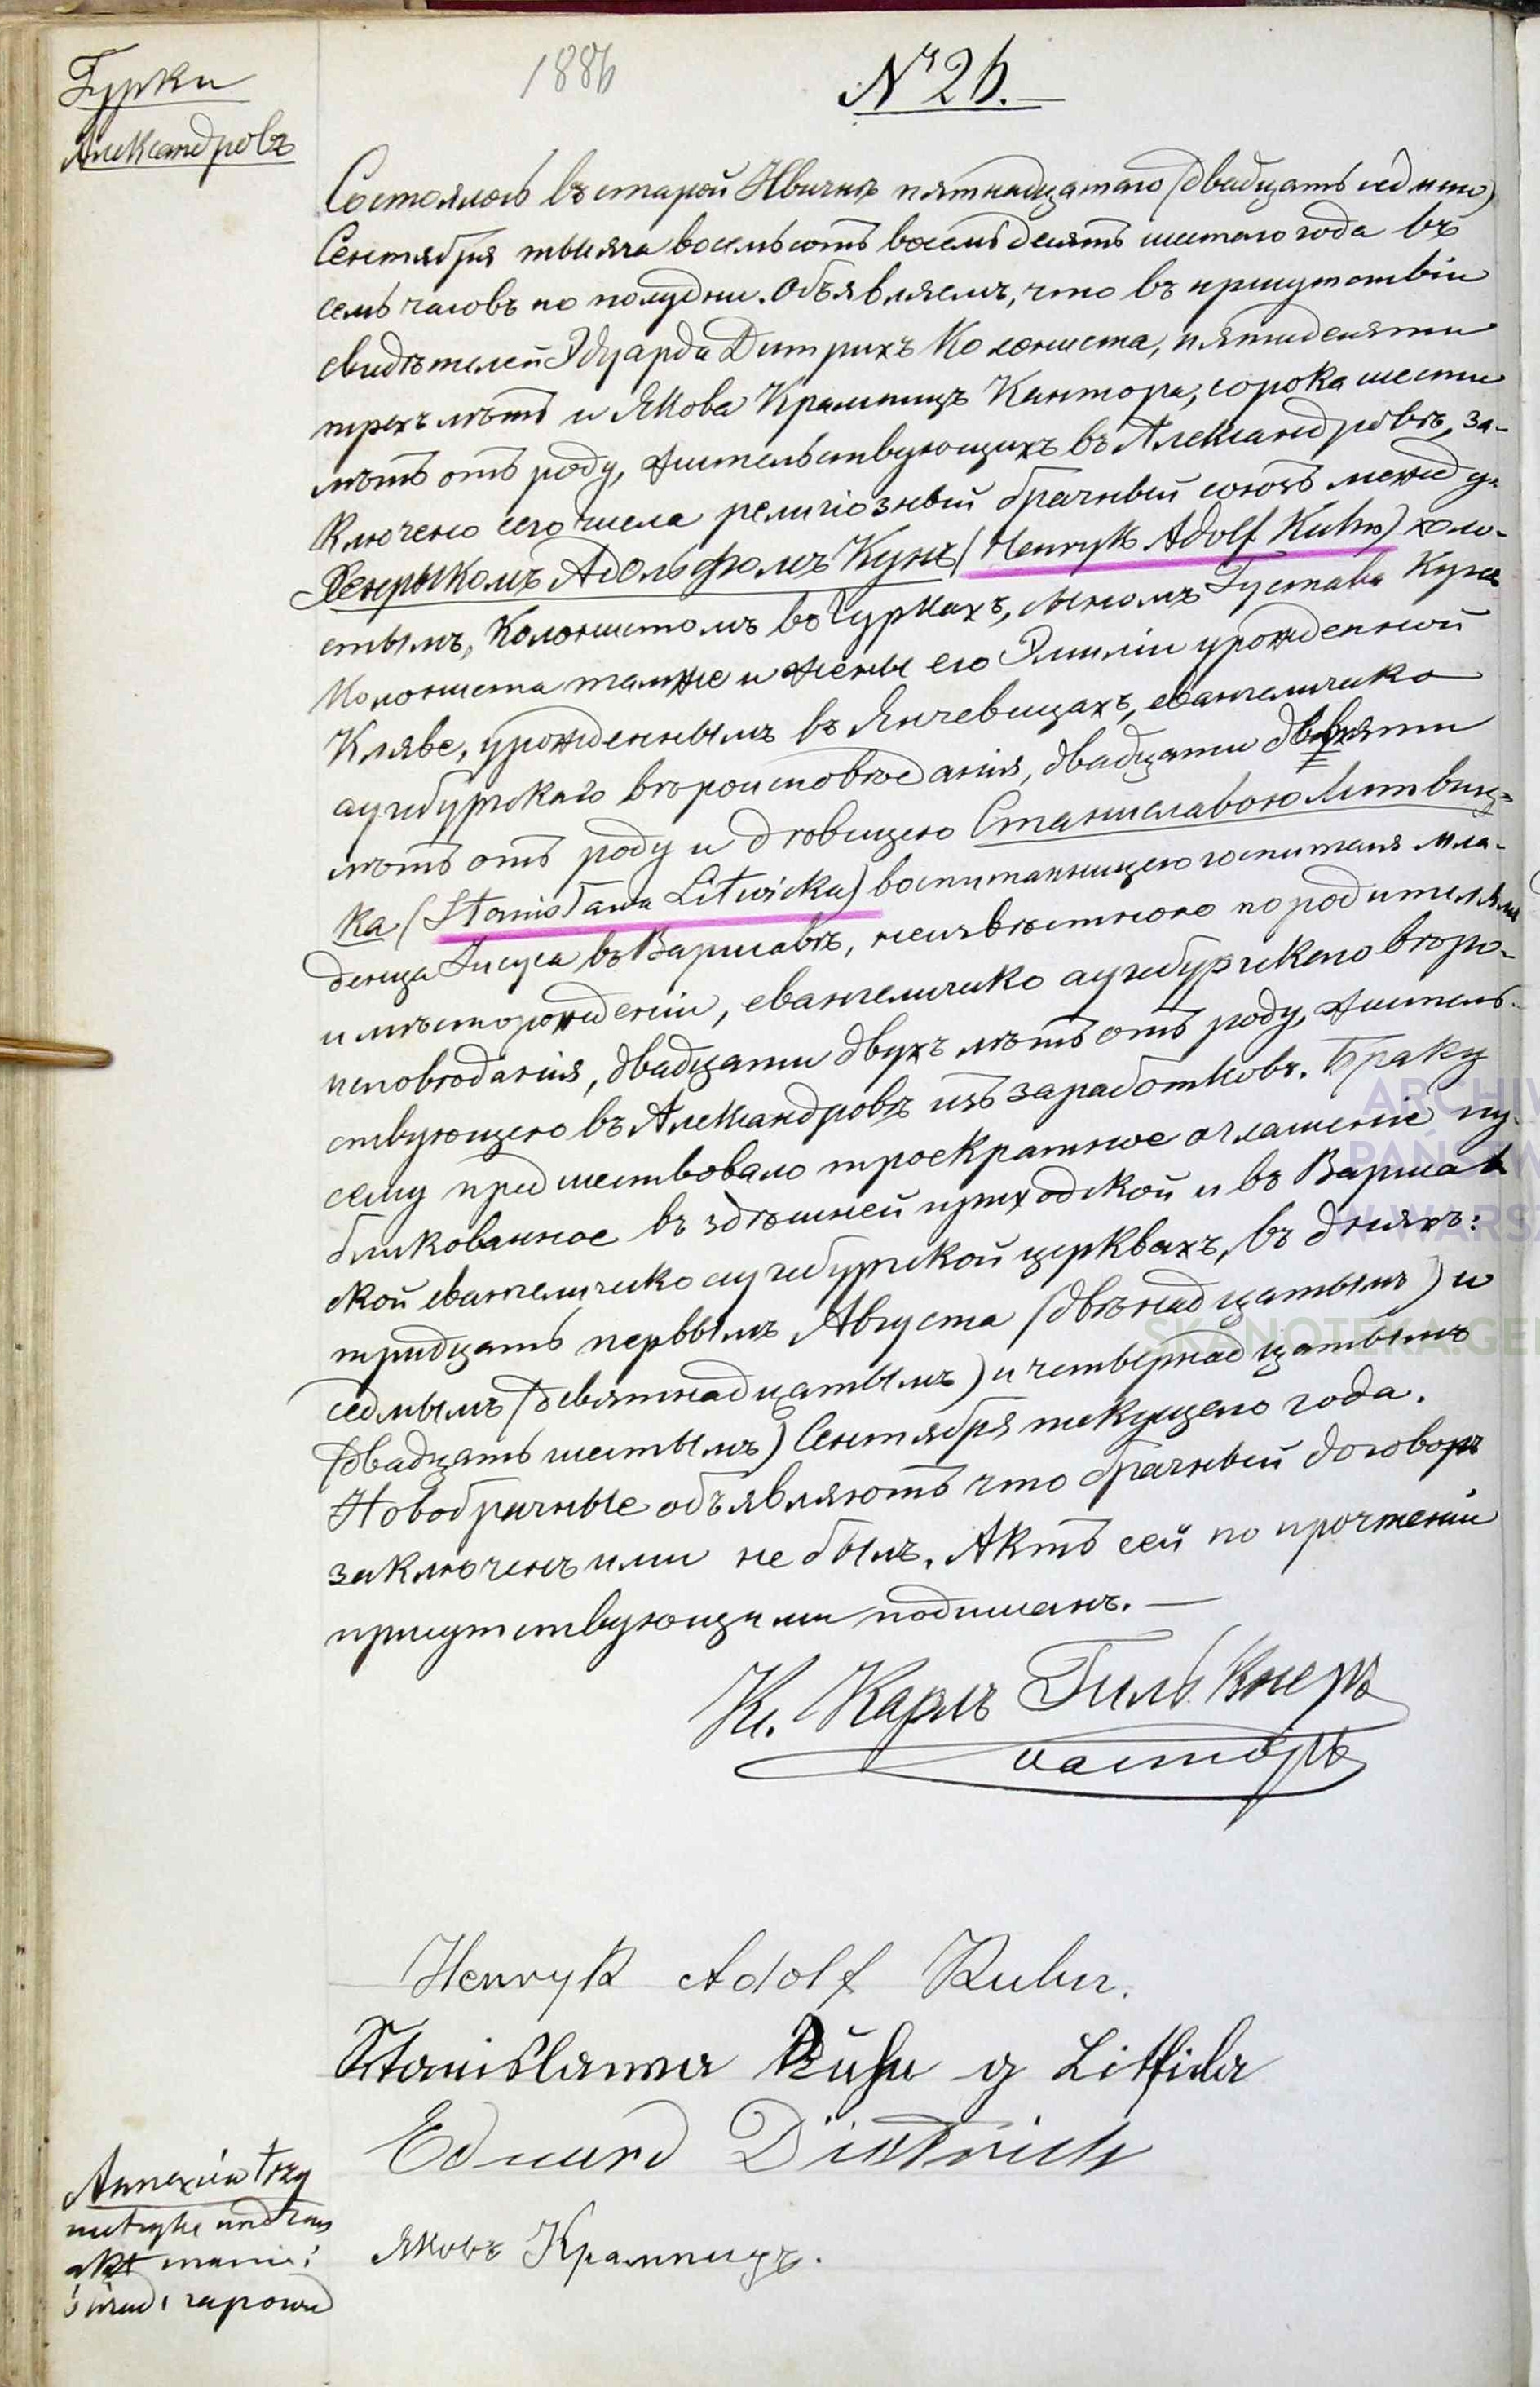 Гурки
Александровъ
1886
№ 26.
Состоялось въ старой Ивичнѣ пятнадцатаго (двадцать седьмаго)
Сентября тысяча восемьсотъ восемьдесятъ шестаго года въ
семь часовъ по полудни. Объявляемъ, что въ присутствіи
свидѣтелей Эдуарда Дитрихъ Колониста, пятидесяти
трехъ лѣтъ и Якова Крампицъ Кантора, сорока шести
лѣтъ отъ роду, жительствующихъ въ Александровѣ, за-
ключено сего числа религіозный брачный союзъ между
Хенрыкомъ Адольфомъ Кунъ (Henryk Adolf Kuhn) холо-
стымъ, Колонистомъ въ Гуркахъ, сыномъ Густава Кунъ
Колониста тамже и жены его Эмиліи урожденной
Кляве, урожденнымъ въ Янчевицахъ, евангелическо
аугсбургскаго вѣроисповѣданія, двадцати девяти
лѣтъ отъ роду и дѣвицею Станиславою Литвиц-
ка (Stanisława Litwicka) воспитанницею госпиталя мла-
денца Іисуса въ Варшавѣ, неизвѣстною по родителямъ
и мѣсторожденіи, евангелическо аугсбургскаго вѣро-
исповѣданія, двадцати двухъ лѣтъ отъ роду, житель-
ствующею въ Александровѣ изъ заработковъ. Браку
сему предшествовало троекратное оглашеніе пу-
бликованное въ здѣшней приходской и въ Варшав
ской евангелическо аугсбургской церквахъ, въ дняхъ:
тридцать первымъ Августа (двѣнадцатымъ) и
седмымъ (девятнадцатымъ) и четырнадцатымъ
(двадцать шестымъ) Сентября текущего года.
Новобрачные объявляютъ что брачный договоръ
заключенъ ими не былъ. Актъ сей по прочтеніи
присутствующими подписанъ.—
Кс. Карлъ Гилькнеръ
пасторъ
Henryk Adolf Kuhn.
Stanislawa Kühn g Litfica
Eduard Dittrich
Яковъ Крампицъ.
Annexów trzy
metryka
akt
i zapowied
ARCHIW
PAŃSTW
W WARSZ
SKANOTEKA.GEN